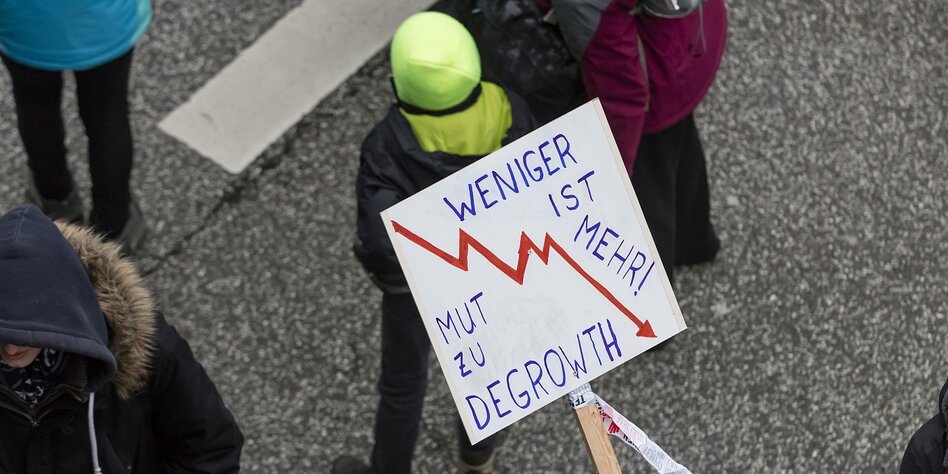 WENIGER
IST
MEHR!
MUT
ZU
DEGROWTH